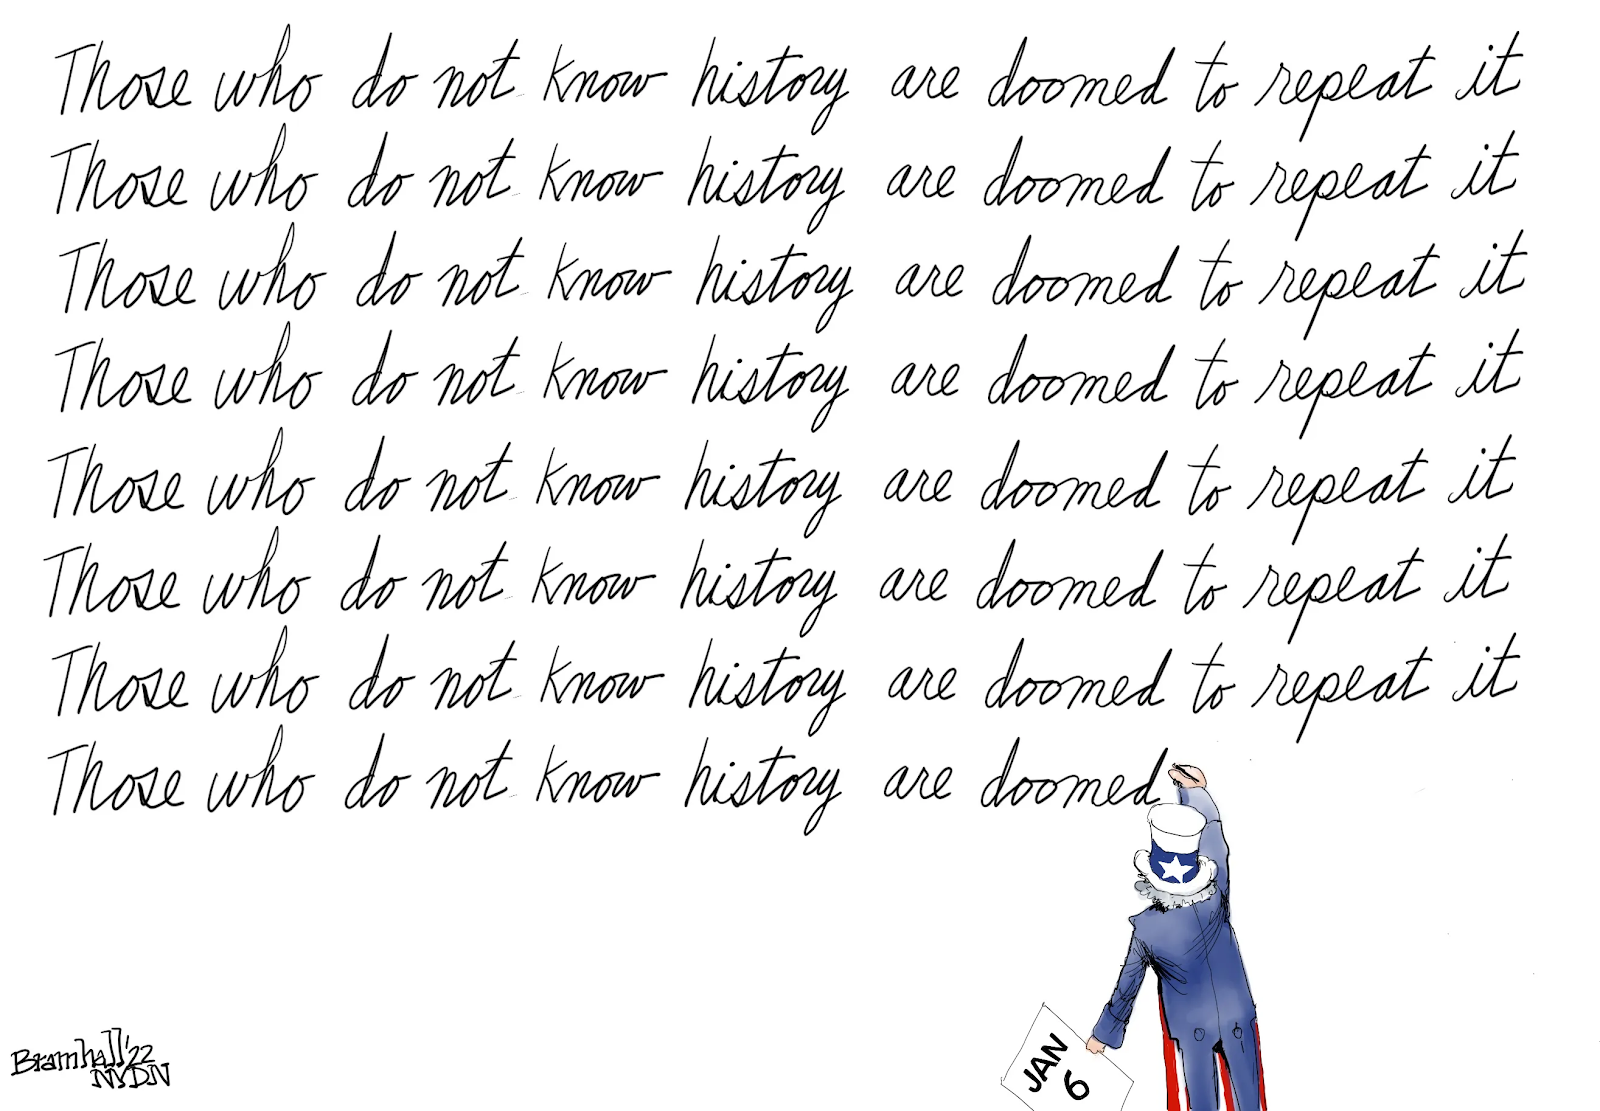 Those who do not know history are doomed to repeat it
Those who do not know history are doomed to repeat it
Those who do not know history are doomed to repeat it
Those who do not know history are doomed to repeat it
Those who do not know history are doomed to repeat it
Those who do not know history are doomed to repeat it
Those who do not know history are doomed to repeat it
Those who do not know history are doomed
JAN
6
Bramhall '22
NYDN